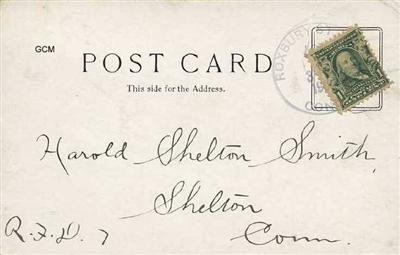 GCM
POST CARD
This side for the Address.
ROXBURY
CON
Harold Shelton Smith,
Shelton
R.F.D. 7
Conn.